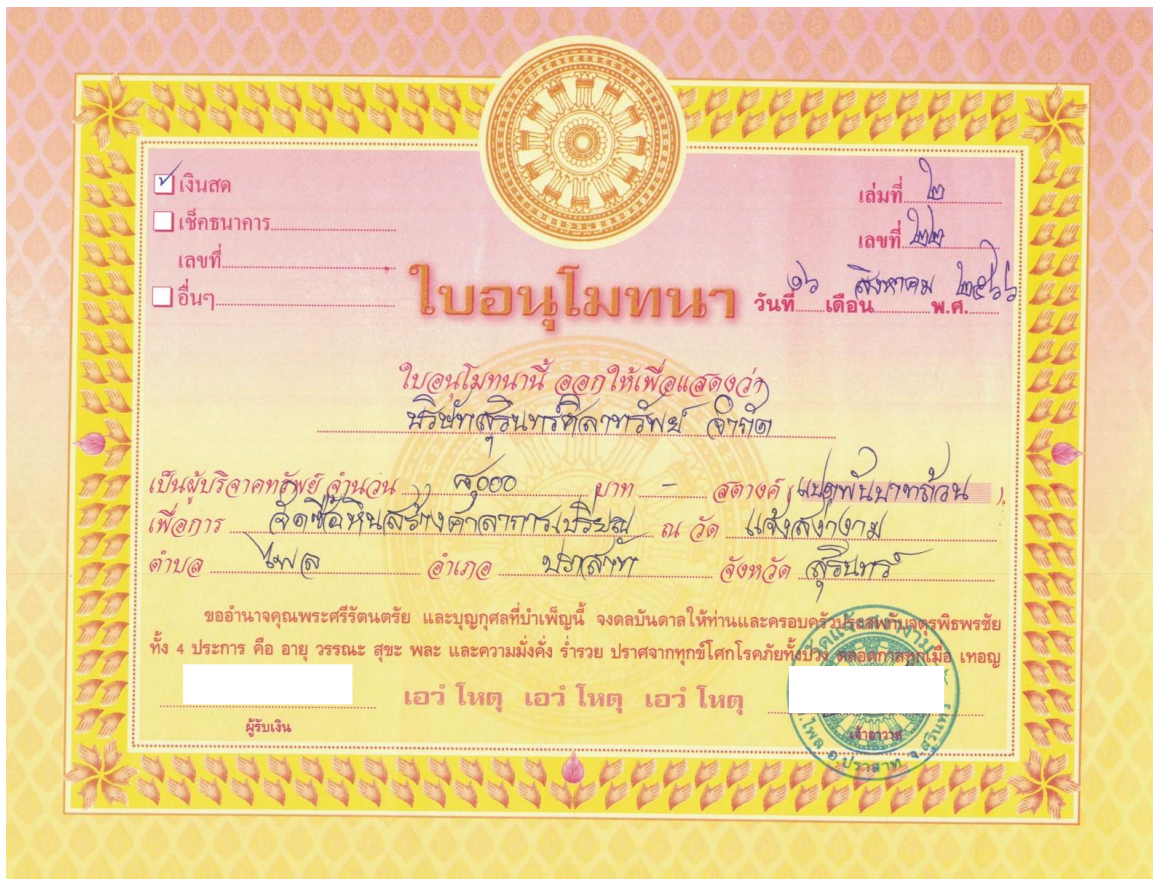 ☑ เงินสด
☐ เช็คธนาคาร
เลขที่
☐ อื่นๆ
เล่มที่ ๒
เลขที่ ๒๒
ใบอนุโมทนา
วันที่ ๑๖ เดือน สิงหาคม พ.ศ. ๒๕๖๖
ใบอนุโมทนานี้ ออกให้เพื่อแสดงว่า
บริษัทสุรินทร์ศิลาทรัพย์ จำกัด
เป็นผู้บริจาคทรัพย์ จำนวน ๘,๐๐๐ บาท - สตางค์ (แปดพันบาทถ้วน)
เพื่อการ จัดซื้อหินสร้างศาลาการเปรียญ ณ วัด แจ้งสง่างาม
ตำบล ไพล อำเภอ ปราสาท จังหวัด สุรินทร์
ขออำนาจคุณพระศรีรัตนตรัย และบุญกุศลที่บำเพ็ญนี้ จงดลบันดาลให้ท่านและครอบครัวประสพกับจตุรพิธพรชัย
ทั้ง 4 ประการ คือ อายุ วรรณะ สุขะ พละ และความมั่งคั่ง ร่ำรวย ปราศจากทุกข์โศกโรคภัยทั้งปวง ตลอดกาลทุกเมื่อ เทอญ
เอวํ โหตุ เอวํ โหตุ เอวํ โหตุ
ผู้รับเงิน
เจ้าอาวาส
วัดแจ้งสง่างาม
ต.ไพล อ.ปราสาท จ.สุรินทร์